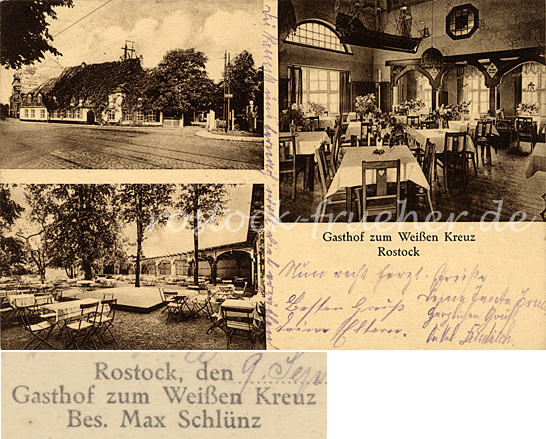 rostock-frueher.de
Gasthof zum Weißen Kreuz
Rostock
Nun recht herzl. Grüße
Besten Gruß
deine Eltern.
deine Tante
herzlichen Gruß
Onkel Friedrich
Rostock, den 9. Sep
Gasthof zum Weißen Kreuz
Bes. Max Schlünz